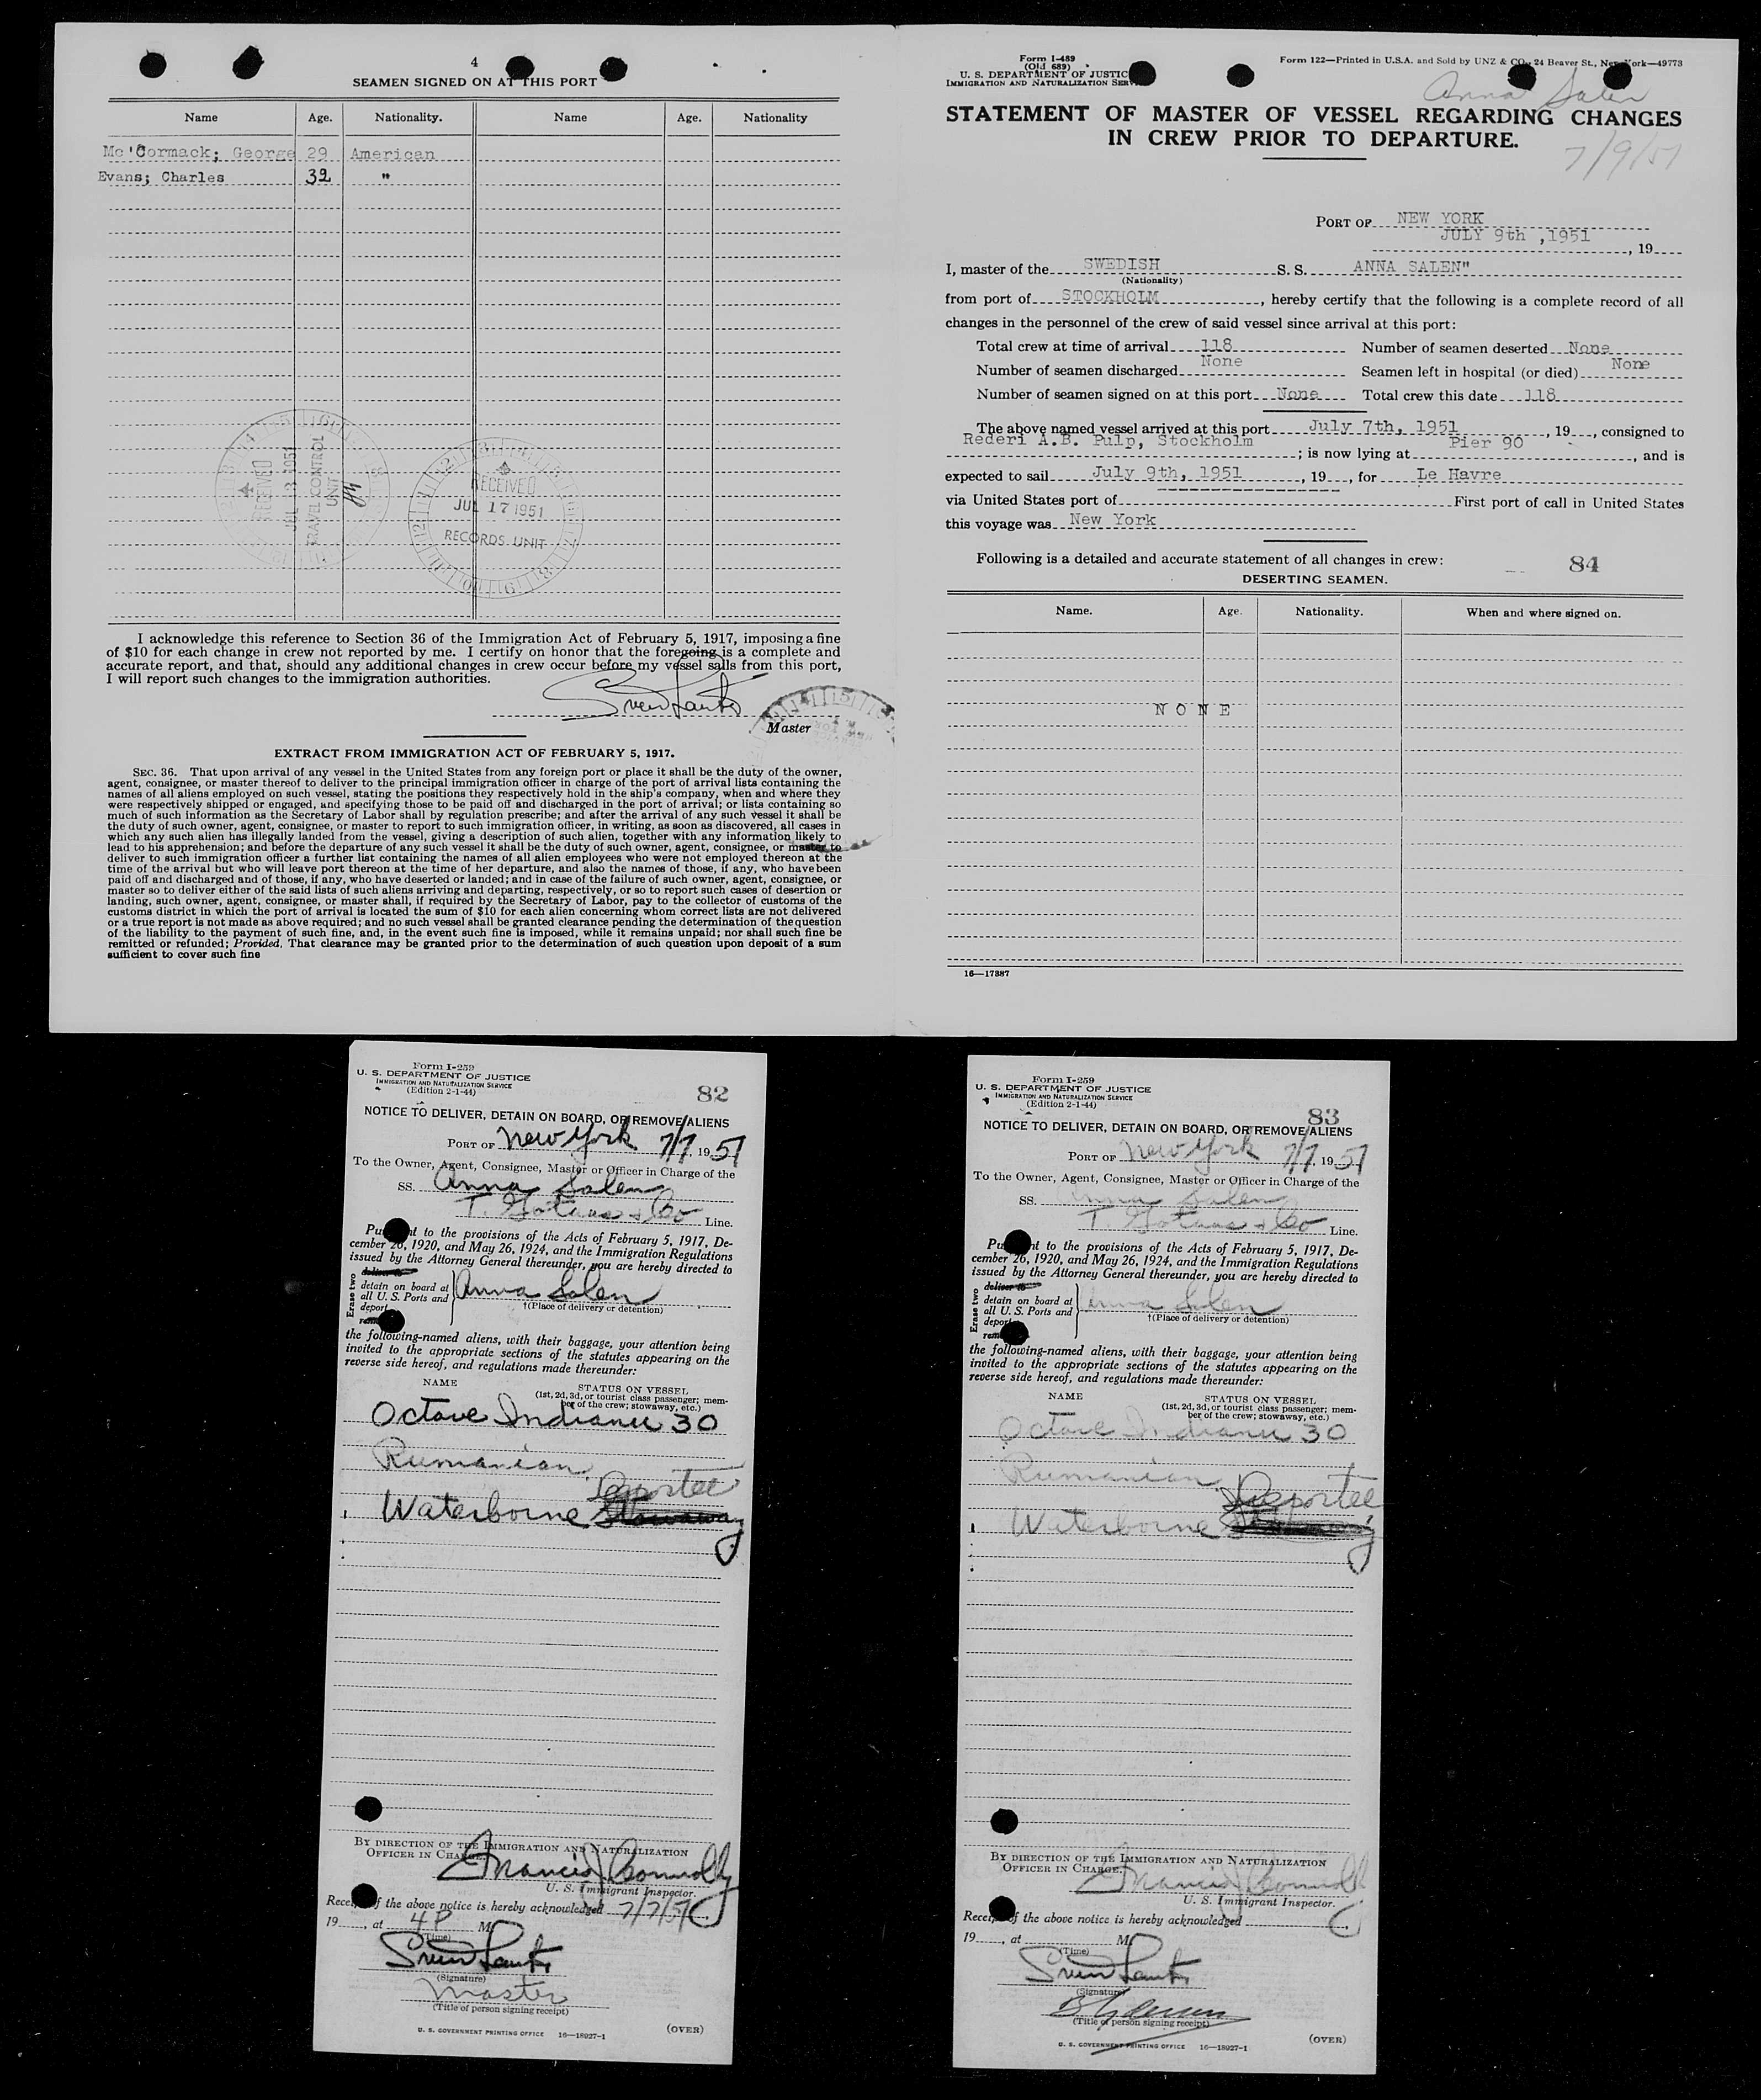 4
SEAMEN SIGNED ON AT THIS PORT
Name Age. Nationality. Name Age. Nationality
Mc'Cormack; George 29 American
Evans; Charles 32 "
RECEIVED
JUL 13 1951
TRAVEL CONTROL
UNIT
RECEIVED
JUL 17 1951
RECORDS UNIT
I acknowledge this reference to Section 36 of the Immigration Act of February 5, 1917, imposing a fine
of $10 for each change in crew not reported by me. I certify on honor that the foregoing is a complete and
accurate report, and that, should any additional changes in crew occur before my vessel sails from this port,
I will report such changes to the immigration authorities.
Master
EXTRACT FROM IMMIGRATION ACT OF FEBRUARY 5, 1917.
SEC. 36. That upon arrival of any vessel in the United States from any foreign port or place it shall be the duty of the owner,
agent, consignee, or master thereof to deliver to the principal immigration officer in charge of the port of arrival lists containing the
names of all aliens employed on such vessel, stating the positions they respectively hold in the ship's company, when and where they
were respectively shipped or engaged, and specifying those to be paid off and discharged in the port of arrival; or lists containing so
much of such information as the Secretary of Labor shall by regulation prescribe; and after the arrival of any such vessel it shall be
the duty of such owner, agent, consignee, or master to report to such immigration officer, in writing, as soon as discovered, all cases in
which any such alien has illegally landed from the vessel, giving a description of such alien, together with any information likely to
lead to his apprehension; and before the departure of any such vessel it shall be the duty of such owner, agent, consignee, or master to
deliver to such immigration officer a further list containing the names of all alien employees who were not employed thereon at the
time of the arrival but who will leave port thereon at the time of her departure, and also the names of those, if any, who have been
paid off and discharged and of those, if any, who have deserted or landed; and in case of the failure of such owner, agent, consignee, or
master so to deliver either of the said lists of such aliens arriving and departing, respectively, or so to report such cases of desertion or
landing, such owner, agent, consignee, or master shall, if required by the Secretary of Labor, pay to the collector of customs of the
customs district in which the port of arrival is located the sum of $10 for each alien concerning whom correct lists are not delivered
or a true report is not made as above required; and no such vessel shall be granted clearance pending the determination of the question
of the liability to the payment of such fine, and, in the event such fine is imposed, while it remains unpaid; nor shall such fine be
remitted or refunded; Provided, That clearance may be granted prior to the determination of such question upon deposit of a sum
sufficient to cover such fine
Form I-489
(Old 689)
U. S. DEPARTMENT OF JUSTIC
IMMIGRATION AND NATURALIZATION SERV
Form 122—Printed in U.S.A. and Sold by UNZ & CO., 24 Beaver St., New York—49773
Anna Salen
STATEMENT OF MASTER OF VESSEL REGARDING CHANGES
IN CREW PRIOR TO DEPARTURE.
7/9/51
PORT OF NEW YORK
JULY 9th ,1951 , 19
I, master of the SWEDISH S. S. ANNA SALEN"
(Nationality)
from port of STOCKHOLM , hereby certify that the following is a complete record of all
changes in the personnel of the crew of said vessel since arrival at this port:
Total crew at time of arrival 118 Number of seamen deserted None
Number of seamen discharged None Seamen left in hospital (or died) None
Number of seamen signed on at this port None Total crew this date 118
The above named vessel arrived at this port July 7th, 1951 , 19 , consigned to
Rederi A.B. Pulp, Stockholm ; is now lying at Pier 90 , and is
expected to sail July 9th, 1951 , 19 , for Le Havre
via United States port of First port of call in United States
this voyage was New York
Following is a detailed and accurate statement of all changes in crew: 84
DESERTING SEAMEN.
Name. Age. Nationality. When and where signed on.
N O N E
16—17387
Form I-259
U. S. DEPARTMENT OF JUSTICE
IMMIGRATION AND NATURALIZATION SERVICE
(Edition 2-1-44)
82
NOTICE TO DELIVER, DETAIN ON BOARD, OR REMOVE ALIENS
PORT OF New York 7/7, 1951
To the Owner, Agent, Consignee, Master or Officer in Charge of the
SS. Anna Salen
T. Gotaas & Co Line.
Pu t to the provisions of the Acts of February 5, 1917, De-
cember 26, 1920, and May 26, 1924, and the Immigration Regulations
issued by the Attorney General thereunder, you are hereby directed to
Erase two
deliver to
detain on board at
all U. S. Ports and
deport
rem
Anna Salen
†(Place of delivery or detention)
the following-named aliens, with their baggage, your attention being
invited to the appropriate sections of the statutes appearing on the
reverse side hereof, and regulations made thereunder:
NAME STATUS ON VESSEL
(1st, 2d, 3d, or tourist class passenger; mem-
ber of the crew; stowaway, etc.)
Octave Indianu 30
Rumanian
Deportee
Waterborne Stowaway
BY DIRECTION OF THE IMMIGRATION AND NATURALIZATION
OFFICER IN CHARGE.
Francis J Connolly
U. S. Immigrant Inspector.
Recei f the above notice is hereby acknowledged 7/7/51
19 , at 4 P M.
(Time)
(Signature)
Master
(Title of person signing receipt)
U. S. GOVERNMENT PRINTING OFFICE 16—18927-1 (OVER)
Form I-259
U. S. DEPARTMENT OF JUSTICE
IMMIGRATION AND NATURALIZATION SERVICE
(Edition 2-1-44)
83
NOTICE TO DELIVER, DETAIN ON BOARD, OR REMOVE ALIENS
PORT OF New York 7/7, 1951
To the Owner, Agent, Consignee, Master or Officer in Charge of the
SS. Anna Salen
T. Gotaas & Co Line.
Pu nt to the provisions of the Acts of February 5, 1917, De-
cember 26, 1920, and May 26, 1924, and the Immigration Regulations
issued by the Attorney General thereunder, you are hereby directed to
Erase two
deliver to
detain on board at
all U. S. Ports and
deport
rem
Anna Salen
†(Place of delivery or detention)
the following-named aliens, with their baggage, your attention being
invited to the appropriate sections of the statutes appearing on the
reverse side hereof, and regulations made thereunder:
NAME STATUS ON VESSEL
(1st, 2d, 3d, or tourist class passenger; mem-
ber of the crew; stowaway, etc.)
Octave Indianu 30
Rumanian
Deportee
Waterborne Stowaway
BY DIRECTION OF THE IMMIGRATION AND NATURALIZATION
OFFICER IN CHARGE.
Francis J Connolly
U. S. Immigrant Inspector.
Recei f the above notice is hereby acknowledged
19 , at M.
(Time)
(Signature)
(Title of person signing receipt)
U. S. GOVERNMENT PRINTING OFFICE 16—18927-1 (OVER)